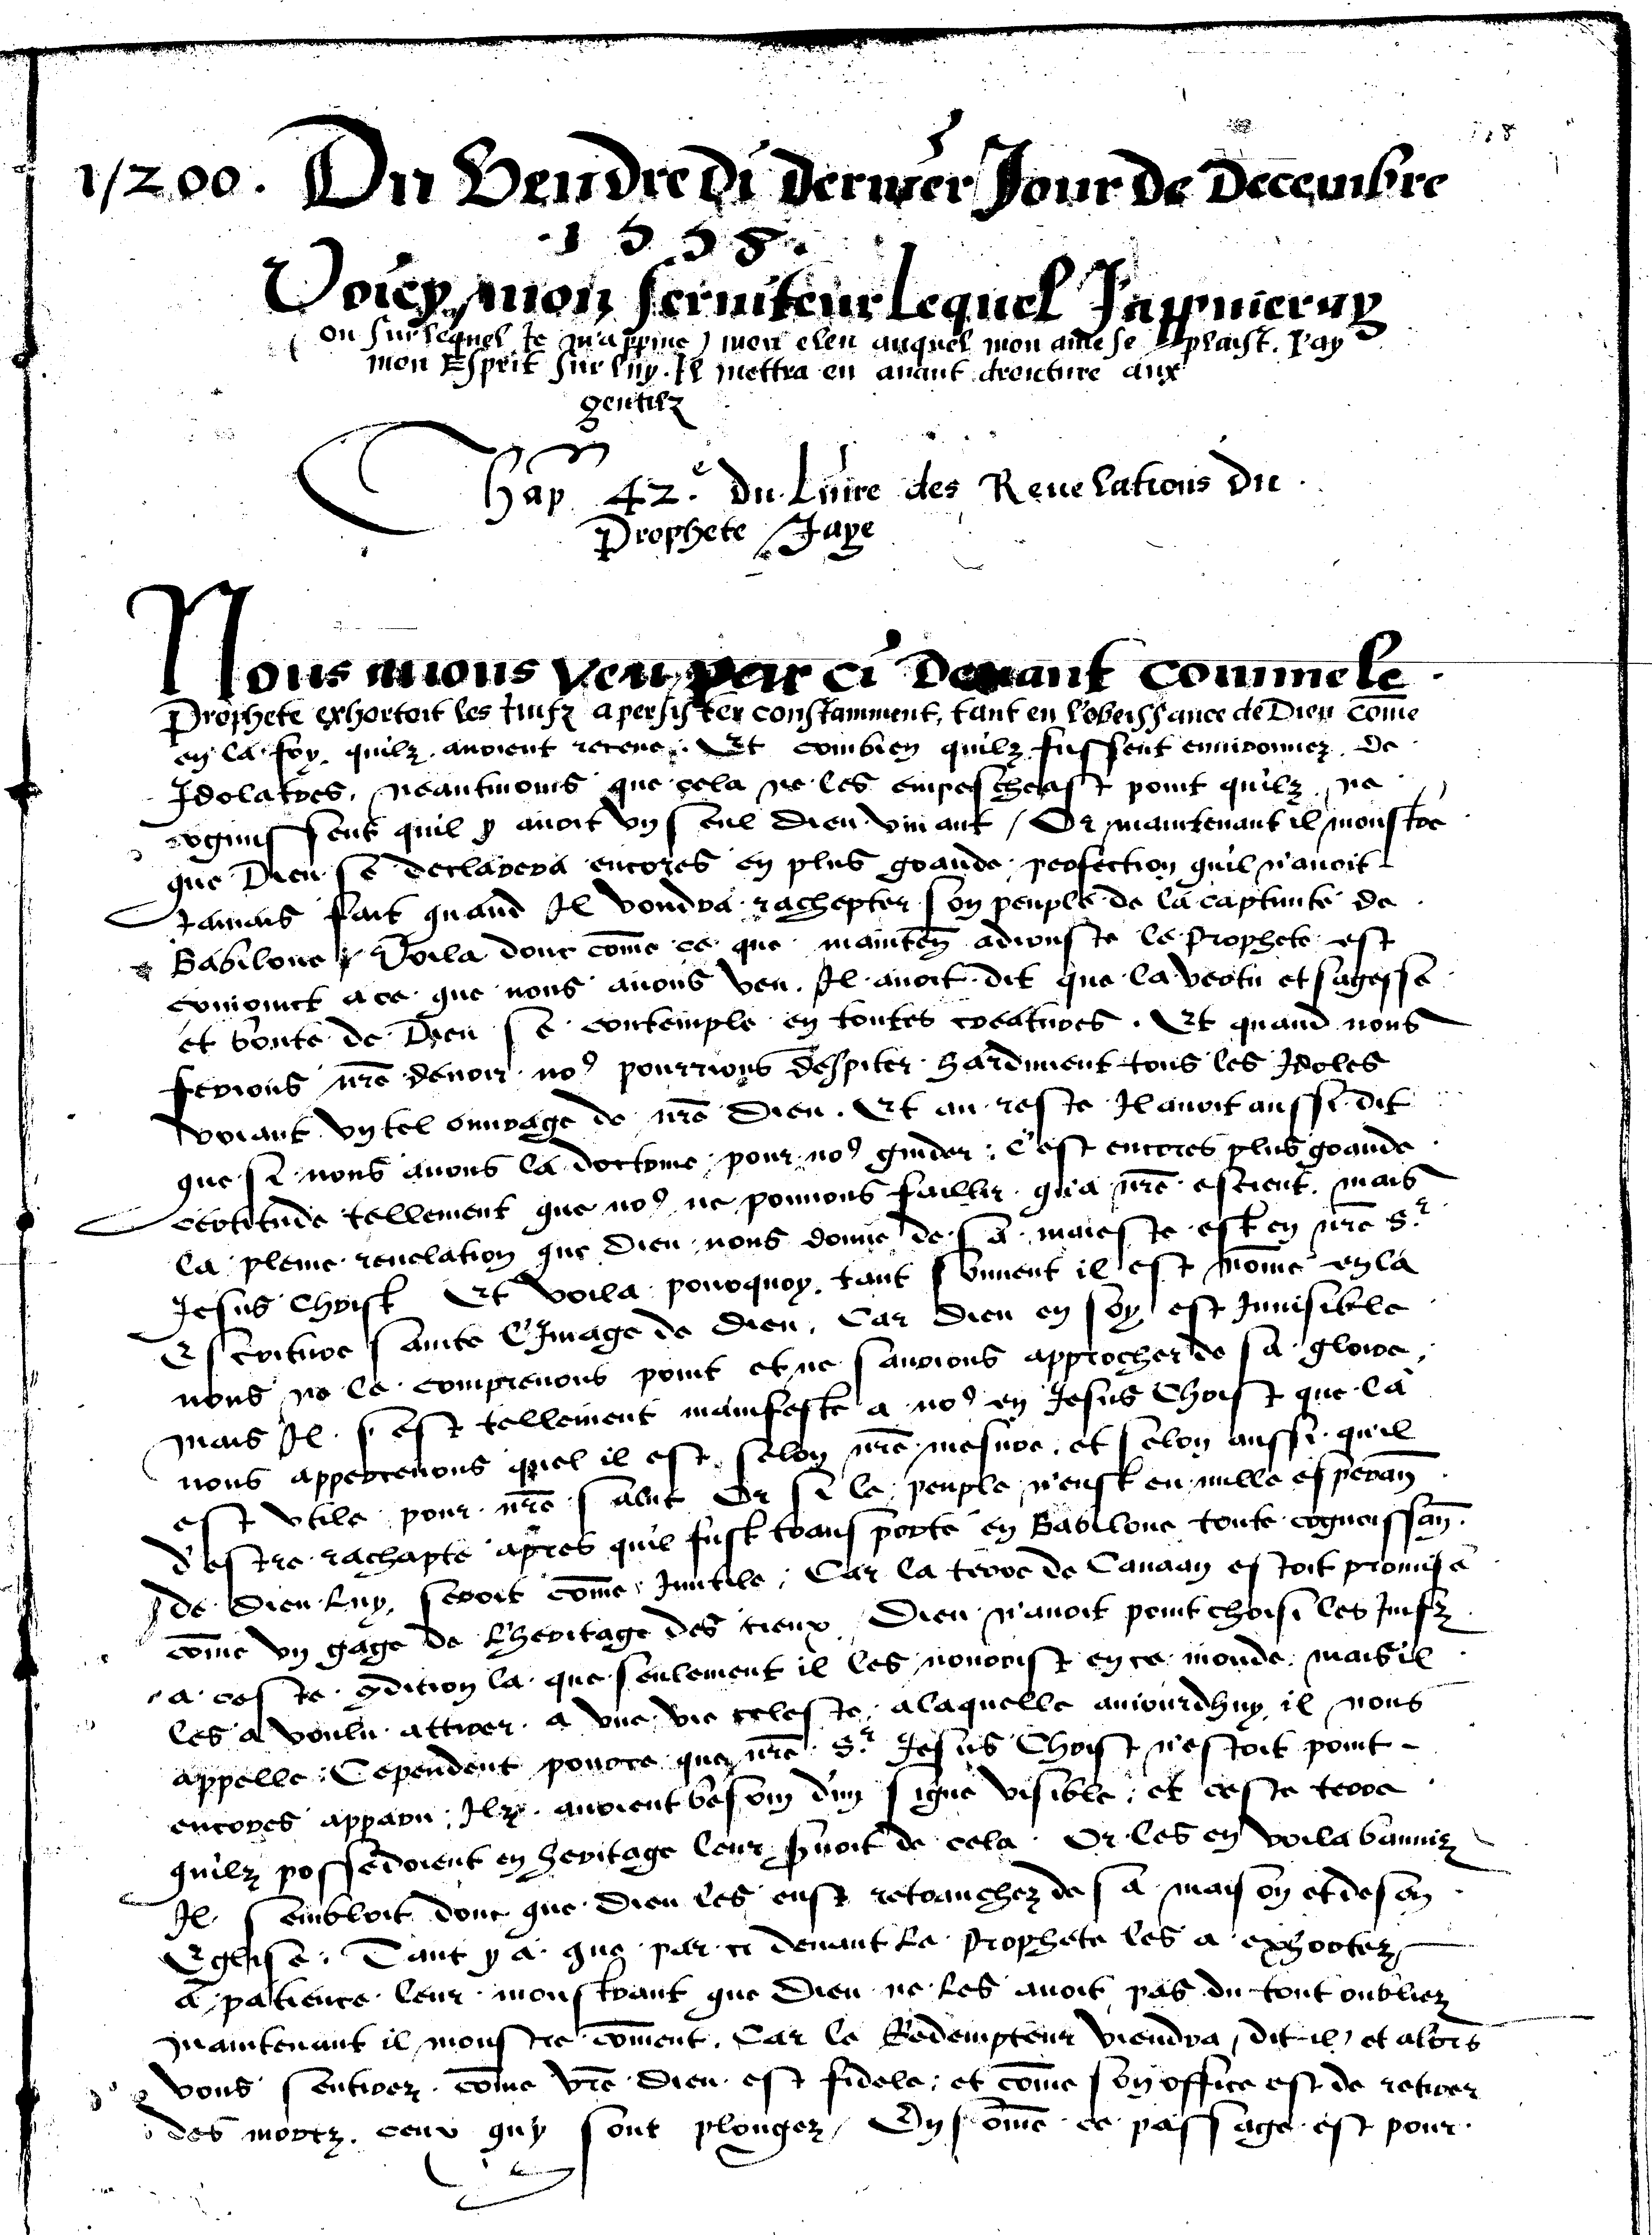 1/200. Du Vendredi dernier Jour de Decembre
.1558.
Voicy mon serviteur lequel J'appuieray
ou sur lequel Je m'appuie) mon eleu auquel mon ame se plaist. J'ay
mon Esprit sur luy. Il mettra en avant droicture aux
gentilz
Chap 42.e du Livre des Revelations du
Prophete Jsaye
Nous avons veu par ci devant comme le
Prophete exhortoit les Juifz a persister constamment, tant en l'obeissance de Dieu cõme
en la foy. quilz avoient receue. Et combien quilz fussent environnez de
Idolatres, neantmoins que cela ne les empescheast point quilz ne
cognussent quil y avoit un seul Dieu vivant / Or maintenant il monstre
que Dieu se declarera encores en plus grande perfection qu'il n'avoit
Jamais fait quand Il voudra rachepter son peuple de la captivité de
Babilone / Voila donc cõme ce que mainteñ adiouste le prophete est
conioinct a ce que nous avons veu. Il avoit dit que la vertu et sagesse
et bonte de Dieu se contemple en toutes creatures. Et quand nous
ferions nr̃e devoir no9 pourrions despiter hardiment tous les Idoles
voiant un tel ouvrage de nr̃e Dieu. Et au reste Il avoit aussi dit
que si nous avons la doctrine pour no9 guider: c'est encores plus grande
certitude tellement que no9 ne pouvons faillir qu'a nr̃e escient. mais
la pleine revelation que Dieu nous donne de sa maieste est en nr̃e S.r
Jesus Christ Et voila pourquoy. tant souvent il est nõme en la
Escriture saincte l'Image de Dieu. Car Dieu en soy est Invisible
nous ne le comprenons point et ne saurions approcher de sa gloire,
mais Il s'est tellement manifeste a no9 en Jesus Christ que la
nous appercevons quel il est. selon nr̃e mesure. et selon aussi qu'il
est utile pour nr̃e salut Or si le peuple n'eust eu nulle esperañ
d'estre rachapte apres qu'il fust transporte en Babilone toute cognoissañ.
de Dieu luy seroit cõme Inutile: Car la terre de Canaan estoit promise
cõme un gage de l'heritage des cieux Dieu n'avoit point choisi les Juifz
a ceste 9dition la que seulement il les nourrist en ce monde. mais il
les a voulu attirer a une vie celeste. a laquelle auiourdhuy il nous
appelle: Cependent pource que nr̃e S.r Jesus Christ n'estoit point
encores apparu, Ilz avoient besoin d'un signe visible: et ceste terre
quilz possedoient en heritage leur servoit de cela. Or les en voila banniz
Il sembloit donc que Dieu les eust retranchez de sa maison et de son
Eglise: Tant y a que par ci devant le prophete les a exhortez
a patience leur monstrant que Dieu ne les avoit pas du tout oubliez
maintenant il monstre cõment. Car le Redempteur viendra, dit-il, et alors
vous sentirez cõme vr̃e Dieu est fidele: et cõme son office est de retirer
des mortz ceux quy sont plongez / En sõme ce passage est pour